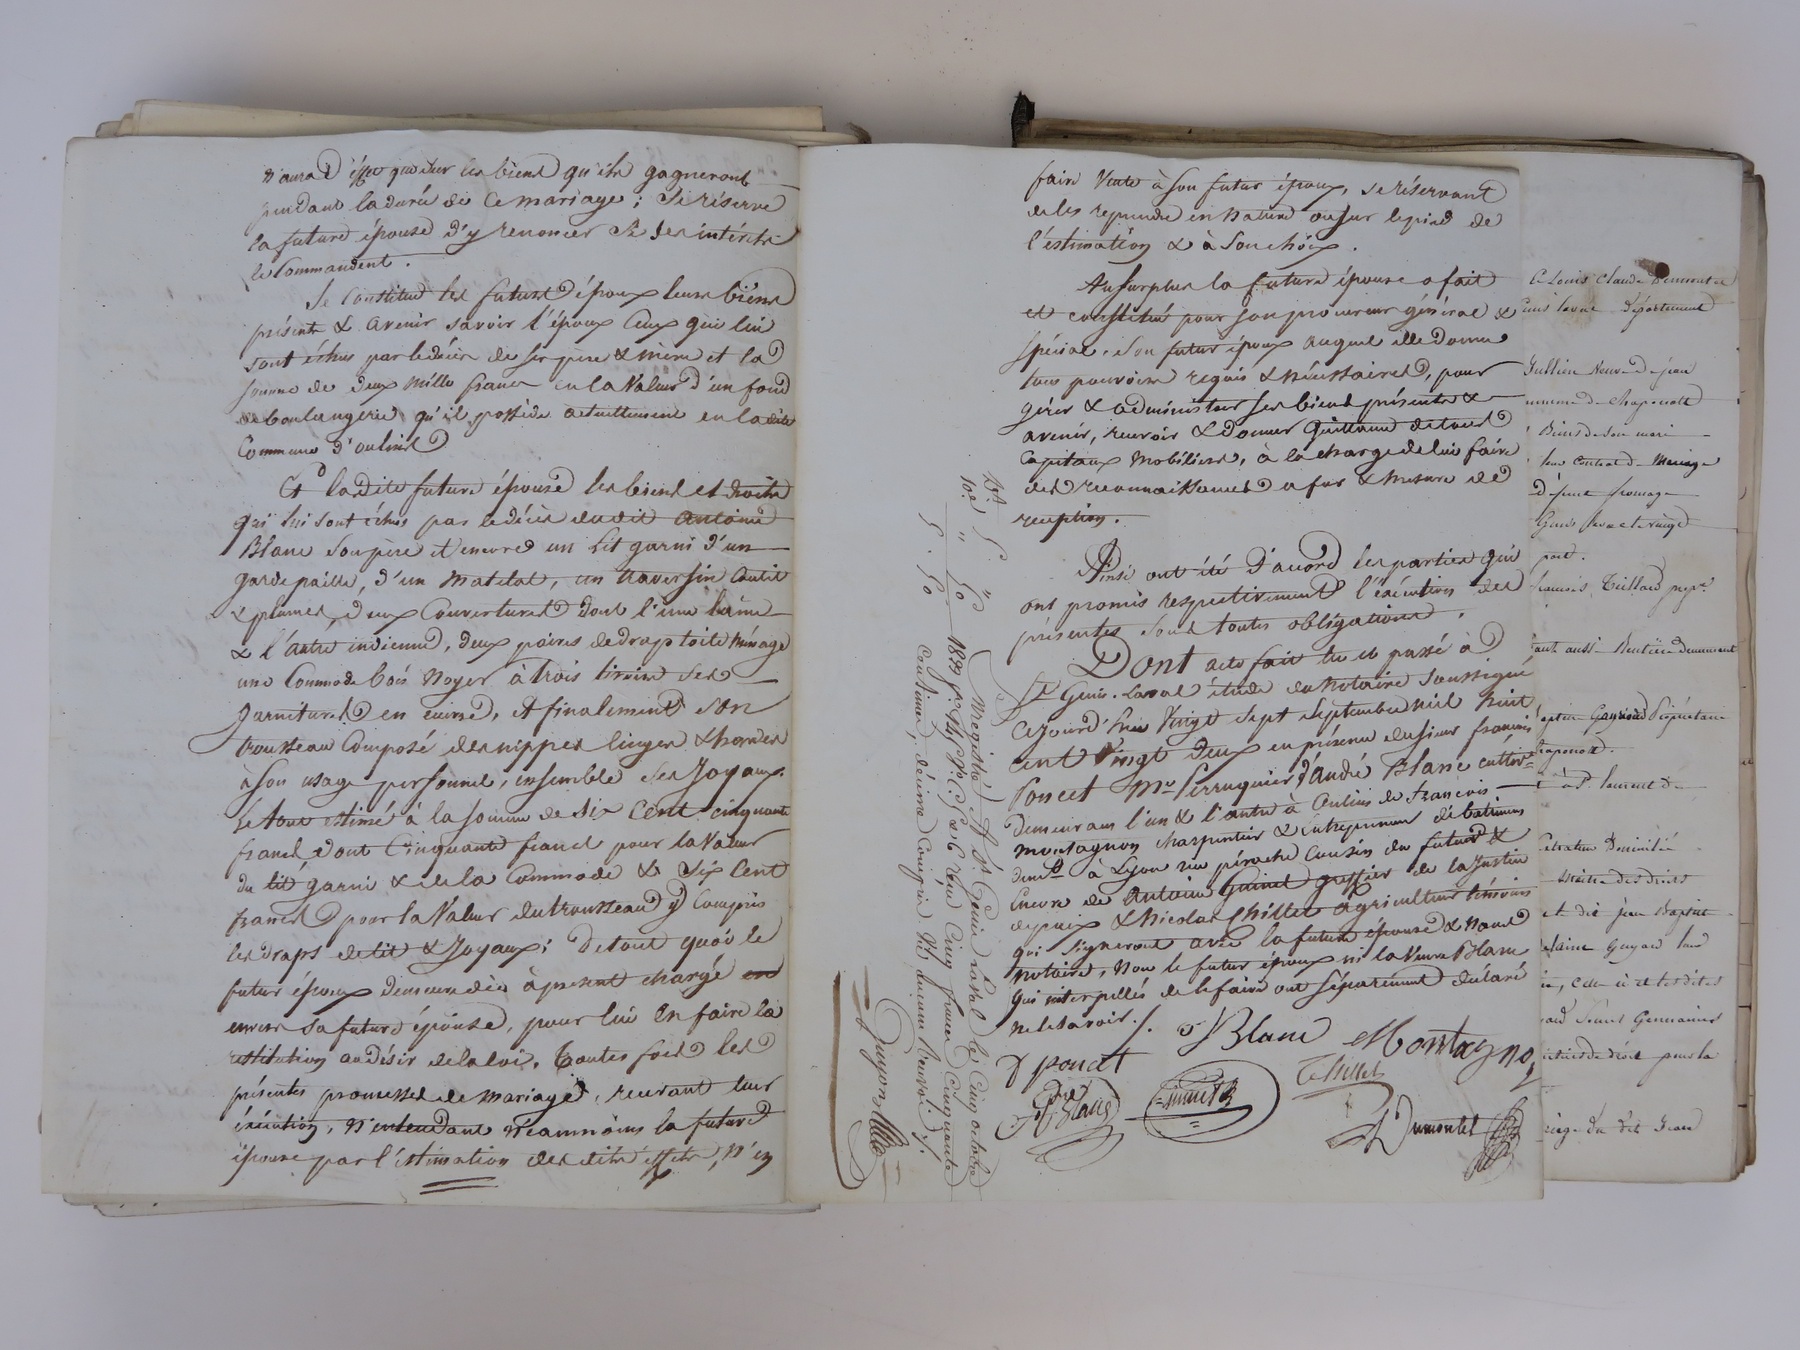 n'aura d'effet que sur les biens qu'ils gagneront
pendant la durée de ce mariage ; se réserve
la future épouse d'y renoncer si ses intérêts
le commandent.
Se constitue les futurs époux leurs biens
présents & avenir savoir l'époux ceux qui lui
sont échus par le décès de ses père & mère et la
somme de deux mille francs en la valeur d'un fond
de boulangerie qu'il possède actuellement en la dite
Commune d'oulins
Et la dite future épouse les biens et droits
qui lui sont échus par le décès dudit antoine
Blanc son père et encore un lit garni d'un
gardepaille, d'un matelat, un traversin coutil
& plumes, deux couvertures dont l'une laine
& l'autre indienne, deux paires de drap toile ménage
une commode bois noyer à trois tiroirs ses
garnitures en cuivre, et finalement son
trousseau composé de nippes linges & hardes
à son usage personnel, ensemble ses Joyaux.
Le tout estimé à la somme de six cent cinquante
francs, dont cinquante francs pour la valeur
du lit garni & de la commode & six cent
francs pour la valeur du trousseau y compris
les draps de lit & Joyaux ; De tout quoi le
futur époux demeure dès à présent chargé
envers sa future épouse, pour lui en faire la
restitution au désir de la loi. Toutes fois les
présentes promesses de mariage, recevant leur
éxécution, n'entendant néammoins la future
épouse par l'estimation des dits effets, n'en
faire vente à son futur époux, se réservant
de les reprendre en nature ou sur le pied de
l'estimation & à son choix.
Au surplus la future épouse a fait
et constitué pour son procureur général &
spécial, son futur époux auquel elle donne
tous pouvoirs requis & nécessaires, pour
gérer & administrer ses biens présents &
avenir, recevoir & donner quittance de tous
capitaux mobiliers, à la charge de lui faire
des reconnaissances a fur & mesure de
reception.
Ainsi ont été d'accord les parties qui
ont promis respectivement l'éxécution des
présentes sous toutes obligations.
Dont acte fait lu et passé à
St Genis-Laval étude du Notaire soussigné
cejourd'hui vingt sept septembre mil huit
cent vingt deux en présence du sieur françois
Poncet Me Perruquier & André Blanc cultivr
demeurans l'un & l'autre à Oulins de François
montagnon charpentier & entrepreneur de batimens
demt à Lyon rue pérache cousin du futur &
Encore de Antoine Guinet greffier de la Justice
de paix & Nicolas Chillet agriculteur témoins
qui signeront avec la future épouse & Nous
notaire, Non le futur époux ni la veuve Blanc
qui interpellés de le faire ont séparément déclaré
ne le savoir ./.
Blanc Montagnon
poncet
Blanc
Guinet
Chillet
Dumontet
Drt 5. "
10e " 50
5. 50
Enregistré A St Genis Laval le Cinq octobre
1822 Reçu Cinq francs Cinquante
centimes, décime compris
Guyon
C Louis Claude Dumontet
Genis laval département
Jullien veuve de jean
commune de chaponost
Biens de son mari
leur contrat de Mariage
françois Teillard propre
Guyard propriétaire
chaponost.
et dit jean Baptiste
Guyard
riage du dit Jean